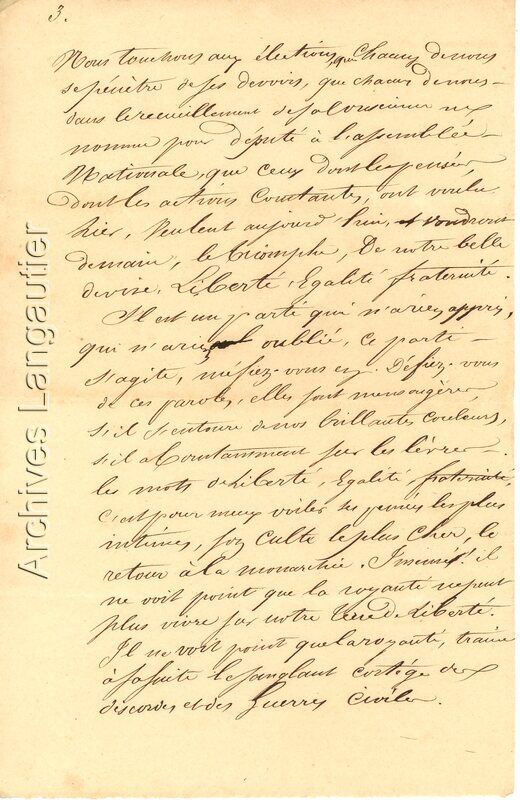 3.
Nous touchons aux élections, que Chacun de nous
se pénètre de ses devoirs, que chacun de nous
dans le recueillement de sa conscience ne
nomme pour député à l'assemblée
Nationale, que ceux dont les pensées,
dont les actions Constantes, ont voulu
hier, Veulent aujourd'hui, et voudront
demain, le triomphe, De notre belle
devise, Liberté, Egalité fraternité.
Il est un parti qui n'a rien appris,
qui n'a rien oublié, ce parti
s'agite, méfiez-vous en. Défiez-vous
de ces paroles, elles sont mensongères,
s'il s'entoure de nos brillantes couleurs,
s'il a Constamment sur les lèvres
les mots de Liberté, Egalité fraternité,
c'est pour mieux voiler ses pensées les plus
intimes, son culte le plus cher, le
retour à la monarchie. Insensés! il
ne voit point que la royauté ne peut
plus vivre sur notre Terre de Liberté.
Il ne voit point que la royauté, traine
à sa suite le sanglant cortège des
discordes et des Guerres Civiles.
Archives Langautier